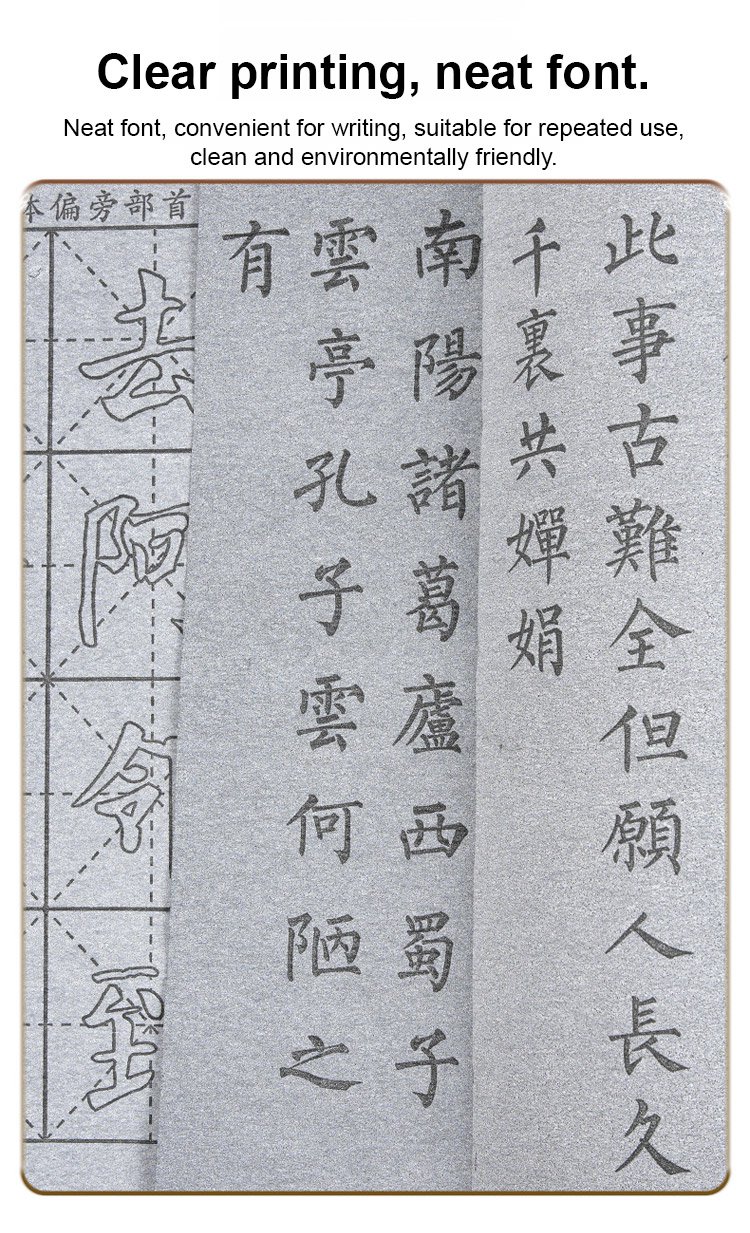 Clear printing, neat font.
Neat font, convenient for writing, suitable for repeated use,
clean and environmentally friendly.
此事古難全但願人長久
千裏共嬋娟
南陽諸葛廬西蜀子
雲亭孔子雲何陋之
有
偏旁部首
去